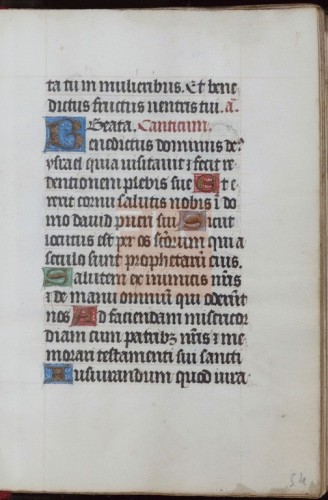 ta tu in mulieribus. Et bene
dictus fructus uentris tui. a.
Beata. Canticum.
Benedictus dominus de9
ysrael quia uisitauit ⁊ fecit re
demtionem plebis sue Et e
rexit cornu salutis nobis ī do
mo dauid pueri sui Sicut
locutus est per os sctorum qui a
seculo sunt prophetarū eius.
Salutem ex inimicis nr̄is
⁊ de manu omniū qui oderūt
nos Ad faciendam misericor
diam cum patribꝫ nr̄is ⁊ me
morari testamenti sui sancti
Iusiurandum quod iura
54